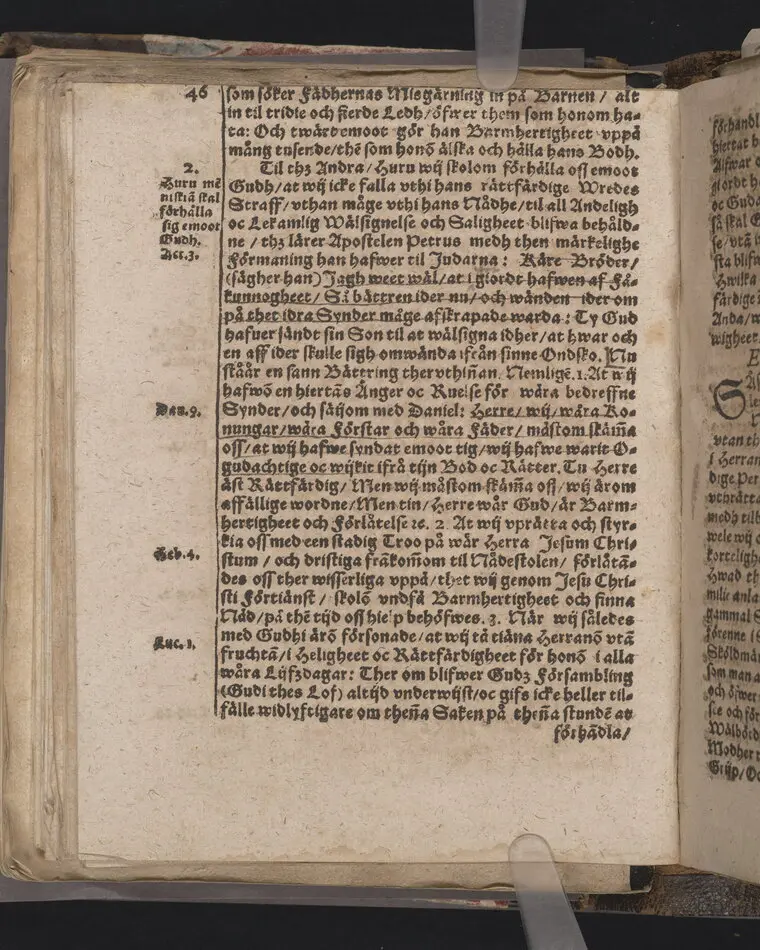 46
som söker Fädhernas Misgärning in på Barnen / alt
in til tridie och fierde Ledh / öfwer them som honom ha-
ta: Och twärtemoot gör han Barmhertigheet vppå
mång tusende/thē som honō älska och hålla hans Bodh.
2.
Huru mē
niskiā skal
förhålla
sig emoot
Gudh.
Act.3.
Til thz Andra / Huru wij skolom förhålla oss emoot
Gudh/at wij icke falla vthi hans rättfärdige Wredes
Straff/vthan måge vthi hans Nådhe/til all Andeligh
oc Lekamlig Wälsignelse och Saligheet blifwa behåld-
ne / thz lärer Apostelen Petrus medh then märkelighe
Förmaning han hafwer til Judarna: Käre Bröder/
(sägher han) Jagh weet wäl/at i giordt hafwen af Få-
kunnogheet/ Så bättren ider nu/och wänden ider om
på thet idra Synder måge afskrapade warda: Ty Gud
hafuer sändt sin Son til at wälsigna idher/at hwar och
en aff ider skulle sigh omwända ifrån sinne Ondsko. Nu
ståår en sann Bättring thervthinān. Nemligē.1.At wij
hafwō en hiertās Ånger oc Ruelse för wåra bedreffne
Dan.9.
Synder/och säijom med Daniel: Herre/wij/wåra Ko-
nungar/wåra Förstar och wåra Fäder/måstom skām̄a
oss/at wij hafwe syndat emoot tig/wij hafwe warit O-
gudachtige oc wijkit ifrå tijn Bod oc Rätter. Tu Herre
äst Rättfärdig/ Men wij måstom skām̄a oss/wij ärom
affällige wordne/Men tin/Herre wår Gud/är Barm-
hertigheet och Förlåtelse ꝛc. 2. At wij vprätta och styr-
kia oss med een stadig Troo på wår Herra Jesum Chri-
Heb.4.
stum / och dristiga frākom̄om til Nådestolen / förlåtā-
des oss ther wisserliga vppå/thet wij genom Jesu Chri-
sti Förtiänst / skolē vndfå Barmhertigheet och finna
Nåd/på thē tijd oss hielp behöfwes. 3. När wij således
med Gudhi ärō försonade/at wij tå tiäna Herranō vtā
Luc.1.
fruchtā/i Heligheet oc Rättfärdigheet för honō i alla
wåra Lijfzdagar: Ther om blifwer Gudz Försambling
(Gudi thes Lof) altijd vnderwijst/oc gifs icke heller til-
fälle widlyftigare om then̄a Saken på then̄a stundē at
förhādla/